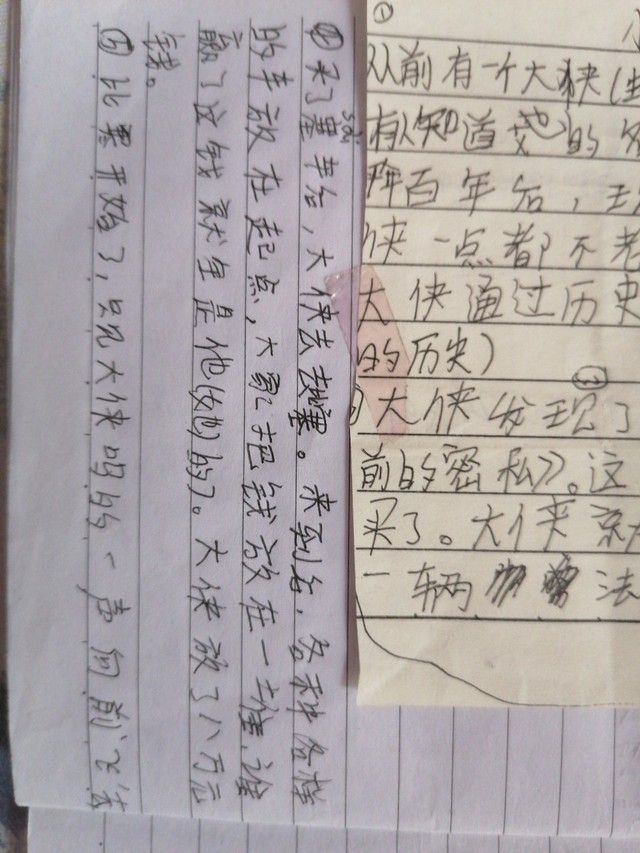 ①
从前有一个大侠(生
有人知道她的名
百年后，
侠一点都不老
大侠通过历史
的历史)
大侠发现了
前的密私》。这
买了。大侠
一辆 法
④买了塞sài车后，大侠去塞。来到后，各种各样
的车放在起点，大家把钱放在一堆，谁
赢了这钱就全是他(她)的)。大侠放了八万元
钱。
⑤比赛开始了，只见大侠呜的一声向前飞去